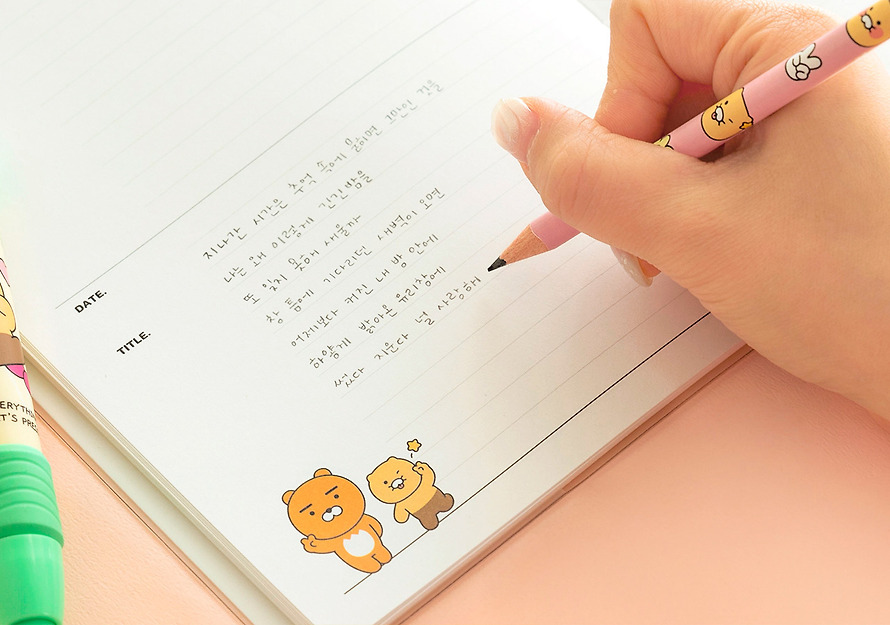 DATE.
TITLE.
지나간 시간은 추억 속에 묻히면 그만인 것을
나는 왜 이렇게 긴긴 밤을
또 잊지 못해 새울까
창 틈에 기다리던 새벽이 오면
어제보다 커진 내 방 안에
하얗게 밝아온 유리창에
썼다 지운다 널 사랑해